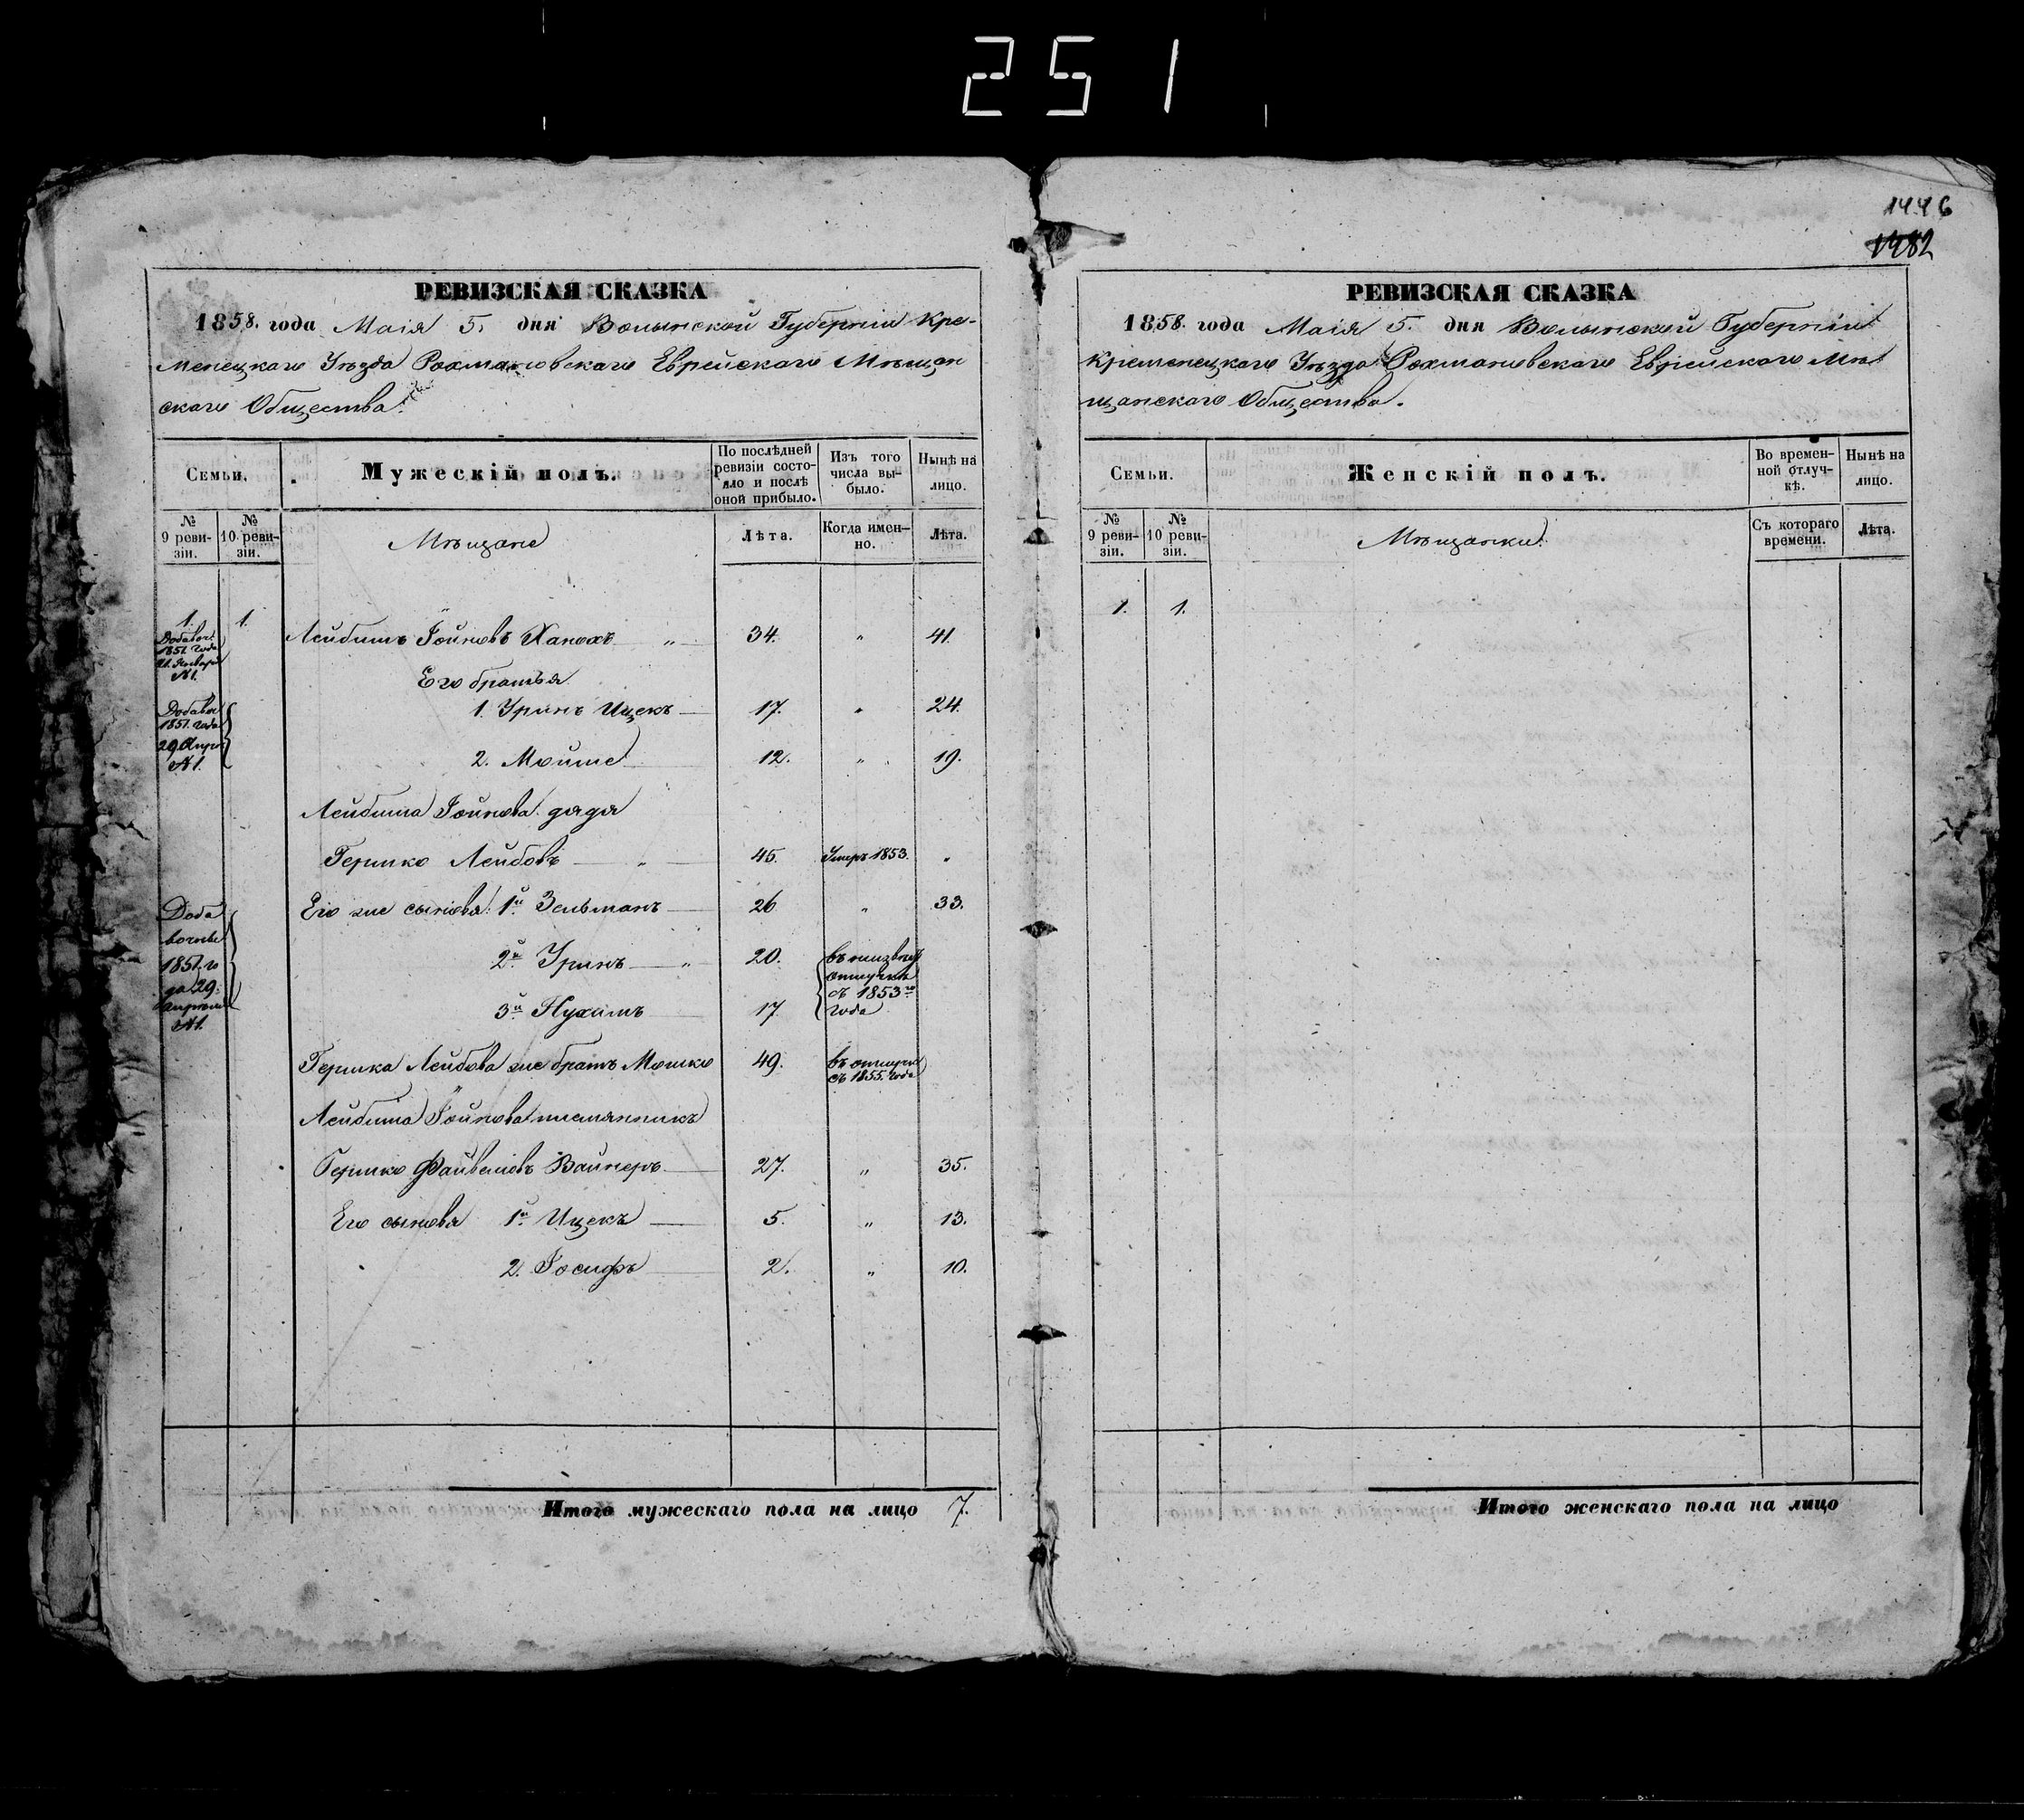 251
1446
1482
РЕВИЗСКАЯ СКАЗКА
1858. года Маія 5. дня Волынской Губерніи Кре-
менецкаго Уѣзда Рохмановскаго Еврейскаго Мѣщан
скаго Общества.
Семьи.
Мужескій полъ.
По послѣдней ревизіи состо-
яло и послѣ оной прибыло.
Изъ того числа вы-
было.
Нынѣ на лицо.
№ 9 реви-
зіи.
№ 10 реви-
зіи.
Мѣщане
Лѣта.
Когда имен-
но.
Лѣта.
1. 1.
Добавоч.
1851. года
21. Января
№1.
Лейбишъ Іойновъ Ханохъ „ 34. „ 41.
Его братья
Добавоч
1851. года
29 Апрѣ
№1.
1. Уринъ Ицекъ 17. „ 24.
2. Мойше 12. „ 19.
Лейбиша Іойнова дядя
Гершко Лейбовъ „ 45. Умеръ 1853. „
Доба
вочные
1851. го
да 29.
Апрѣля
№1.
Его же сыновья: 1й Зельманъ 26 „ 33.
2й Уринъ „ 20.
3й Нухимъ 17
въ неизвѣс
отлучкѣ
съ 1853го
года
Гершка Лейбова же братъ Мошко 49. въ отлучкѣ
съ 1855. года
Лейбиша Іойнова племянникъ
Гершко Файвелювъ Вайнеръ 27. „ 35.
Его сыновья 1й Ицекъ 5. „ 13.
2. Іосифъ 2. „ 10.
Итого мужескаго пола на лицо 7.
РЕВИЗСКАЯ СКАЗКА
1858. года Маія 5. дня Волынской Губерніи
Кременецкаго Уѣзда Рохмановскаго Еврейскаго Мѣ
щанскаго Общества.
Семьи.
Женскій полъ.
Во времен-
ной отлуч-
кѣ.
Нынѣ на лицо.
№ 9 реви-
зіи.
№ 10 реви-
зіи.
Мѣщанки.
Съ котораго времени.
Лѣта.
1. 1.
Итого женскаго пола на лицо